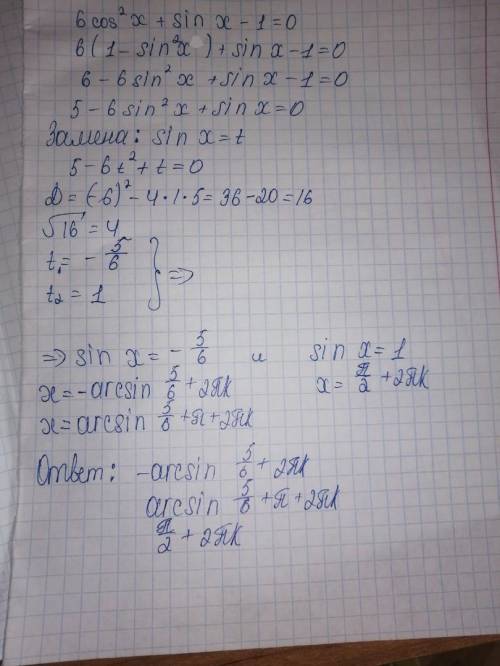 6cos²x + sin x - 1 = 0
6(1 - sin²x) + sin x - 1 = 0
6 - 6sin²x + sin x - 1 = 0
5 - 6sin²x + sin x = 0
Замена: sin x = t
5 - 6t² + t = 0
D = (-6)² - 4·1·5 = 36 - 20 = 16
√16 = 4
t₁ = - 5/6
t₂ = 1 } ⇒
⇒ sin x = - 5/6 и sin x = 1
x = -arcsin 5/6 + 2πk x = π/2 + 2πk
x = arcsin 5/6 + π + 2πk
Ответ: -arcsin 5/6 + 2πk
arcsin 5/6 + π + 2πk
π/2 + 2πk